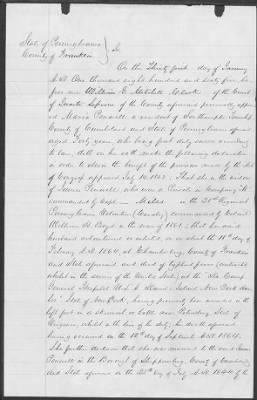 State of Pennsylvania
County of Franklin } Ss
On this Thirty first day of January
A.D. One thousand eight hundred and sixty five, be
fore me William G. Mitchell Clerk of the Court
of Quarter Sessions of the County aforesaid personally appear
ed Maria a resident of Southampton Township
County of Cumberland and State of Pennsylvania
aged Forty years, who being first duly sworn according
to law, doth on her oath make the following declaration
in order to obtain the benefit of the provision made by the Act
of Congress approved July 14, 1862: That she is the widow
of James who was a Private in Company
commanded by Capt. in the 21st Regiment
Pennsylvania Volunteer (Cavalry) commanded by Colonel
William B. Boyd in the war of 1861: that her said
husband volunteered or enlisted, on or about the day of
February A.D. 1864, at Chambersburg, County of Franklin
and State aforesaid and died of typhoid fever contracted
whilst in the service of the United States, at the Camp
General Hospital Island New York Har
bor State of New York, having previously been wounded in the
left foot in a skirmish or battle near Petersburg, State of
Virginia, whilst in the line of his duty; his death aforesaid
having occurred on the day of September A.D. 1864.
She further declares that she was married to the said James
in the Borough of Shippensburg, County of Cumberland
and State aforesaid on the day of July A.D. 1844 by the